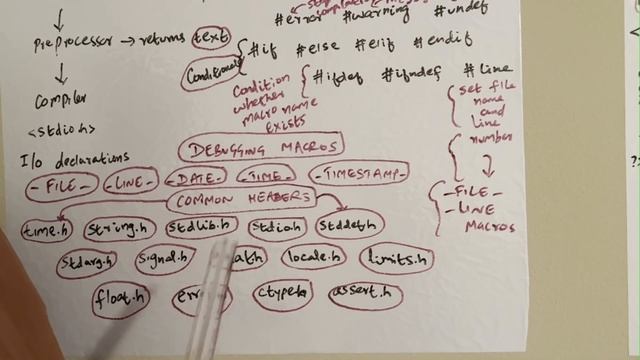 #error #warning #undef
PreProcessor → returns text
#if #else #elif #endif
Conditionals
#ifdef #ifndef #line
Condition
whether
macro name
exists
set file
name
and
line
number
Compiler
<stdio.h>
I/o declarations
DEBUGGING MACROS
-FILE- -LINE- -DATE- -TIME- -TIMESTAMP-
COMMON HEADERS
-FILE-
-LINE
MACROS
time.h string.h stdlib.h stdio.h stddef.h
stdarg.h signal.h locale.h limits.h
float.h ctype.h assert.h